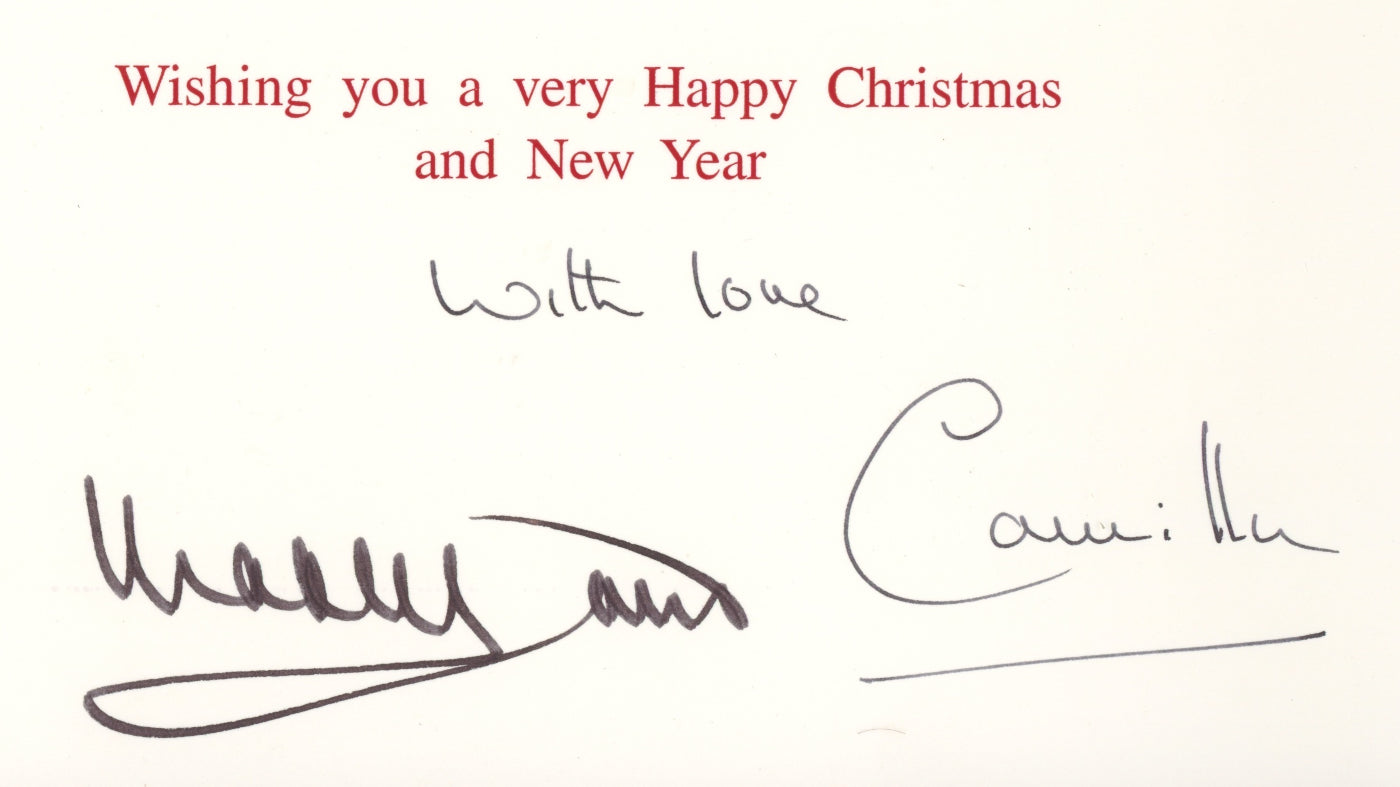 Wishing you a very Happy Christmas
and New Year
With love
Camilla